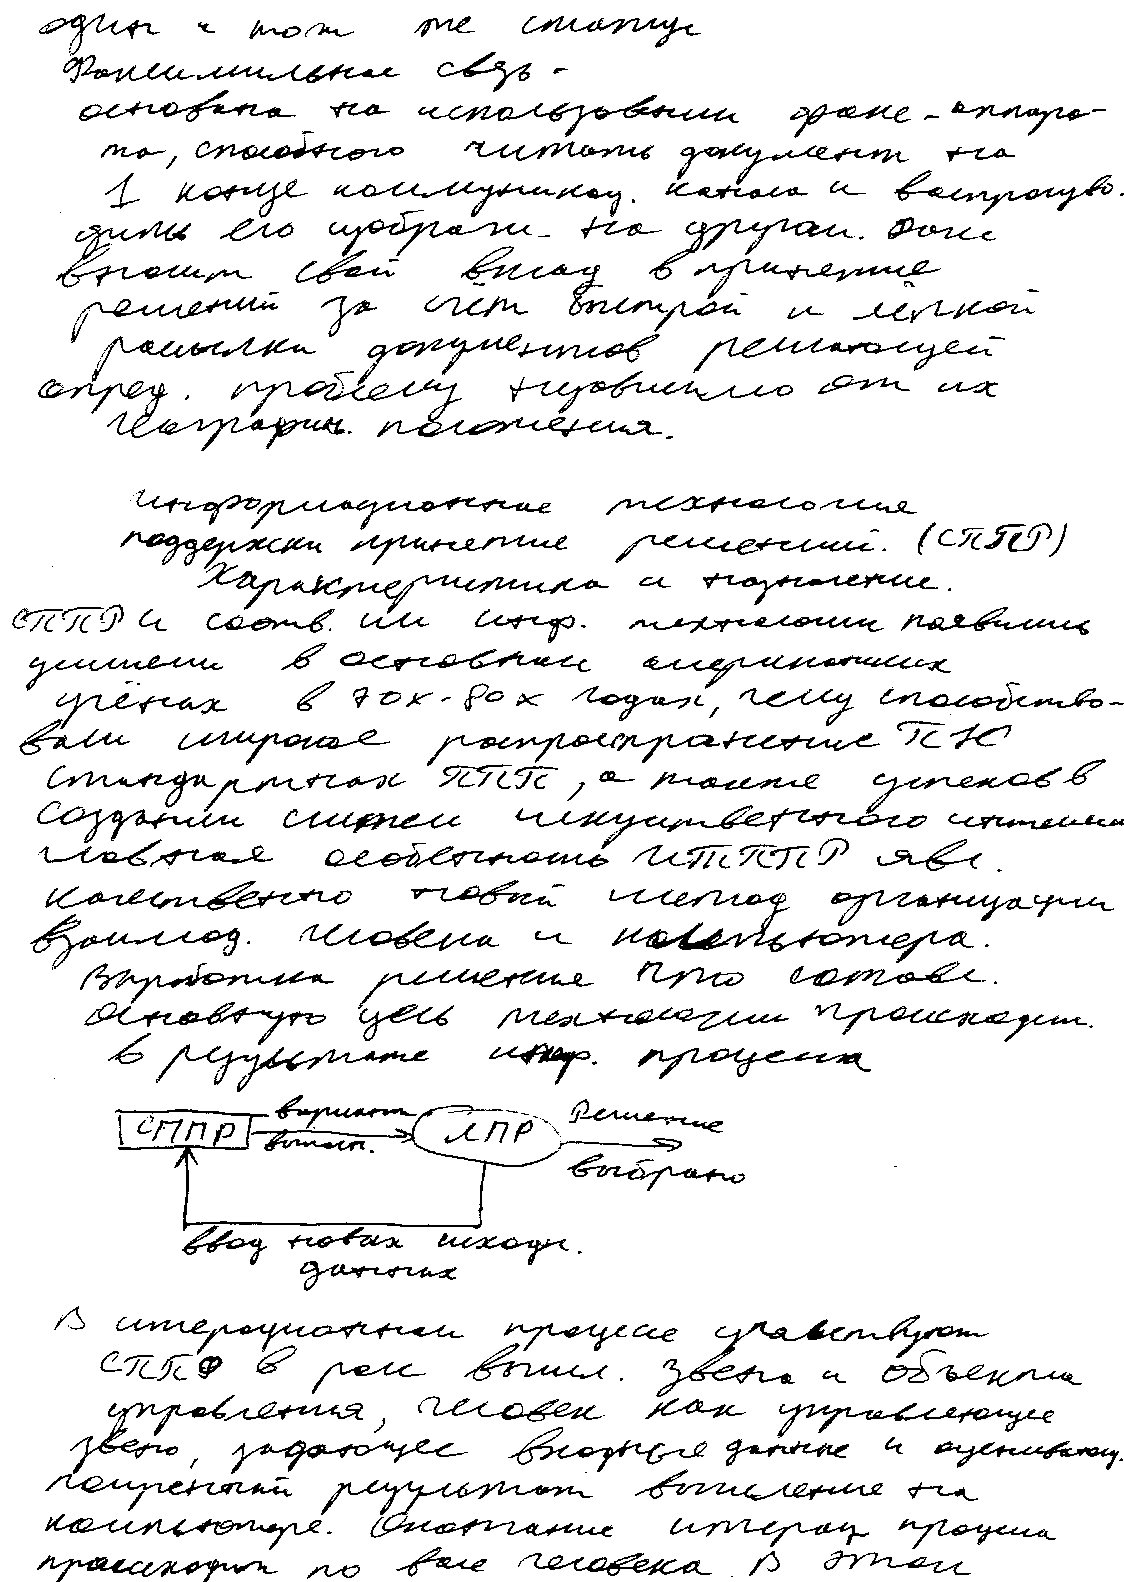 один и тот же статус
Факсимильное связь -
основана на использовании факс-аппара-
та, способного читать документ на
1 конце коммуникац. канала и воспроизво.
дить его изображ- на другом. Факс
вносит свой вклад в принятие
решений за счёт быстрой и лёгкой
рассылки документов решающей
опред. проблему независимо от их
географич. положения.
информационные технология
поддержски принятие решений. (СППР)
Характеристика и назначение.
СППР и соотв. им инф. технологии появились
усилием в основном американских
учёных в 70х-80х годах, чему способство-
вали широкое распространение ПК
стандартных ППП, а также успехов в
создании систем искусственного
главная особенность ИТППР явл.
качественно новый метод организации
взаимод. человека и компьютера.
Выработка решение что составл.
основную цель технологии происходит.
в результате итер. процесса
СППР вариант ЛПР Решение
вычисл. выбрано
ввод новых исходн.
данных
В итерационном процессе участвуют
СППР в рол вычисл. звена и объекта
управления, человек как управляющее
звено, задающее входные данные и оценивающ.
полученный результат вычисление на
компьютере. Окончание итерац процесса
происходит по воле человека. В этом